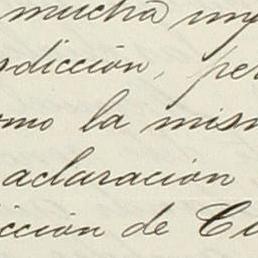 mucha
dicción, per
omo la mism
aclaración
icción de Cu